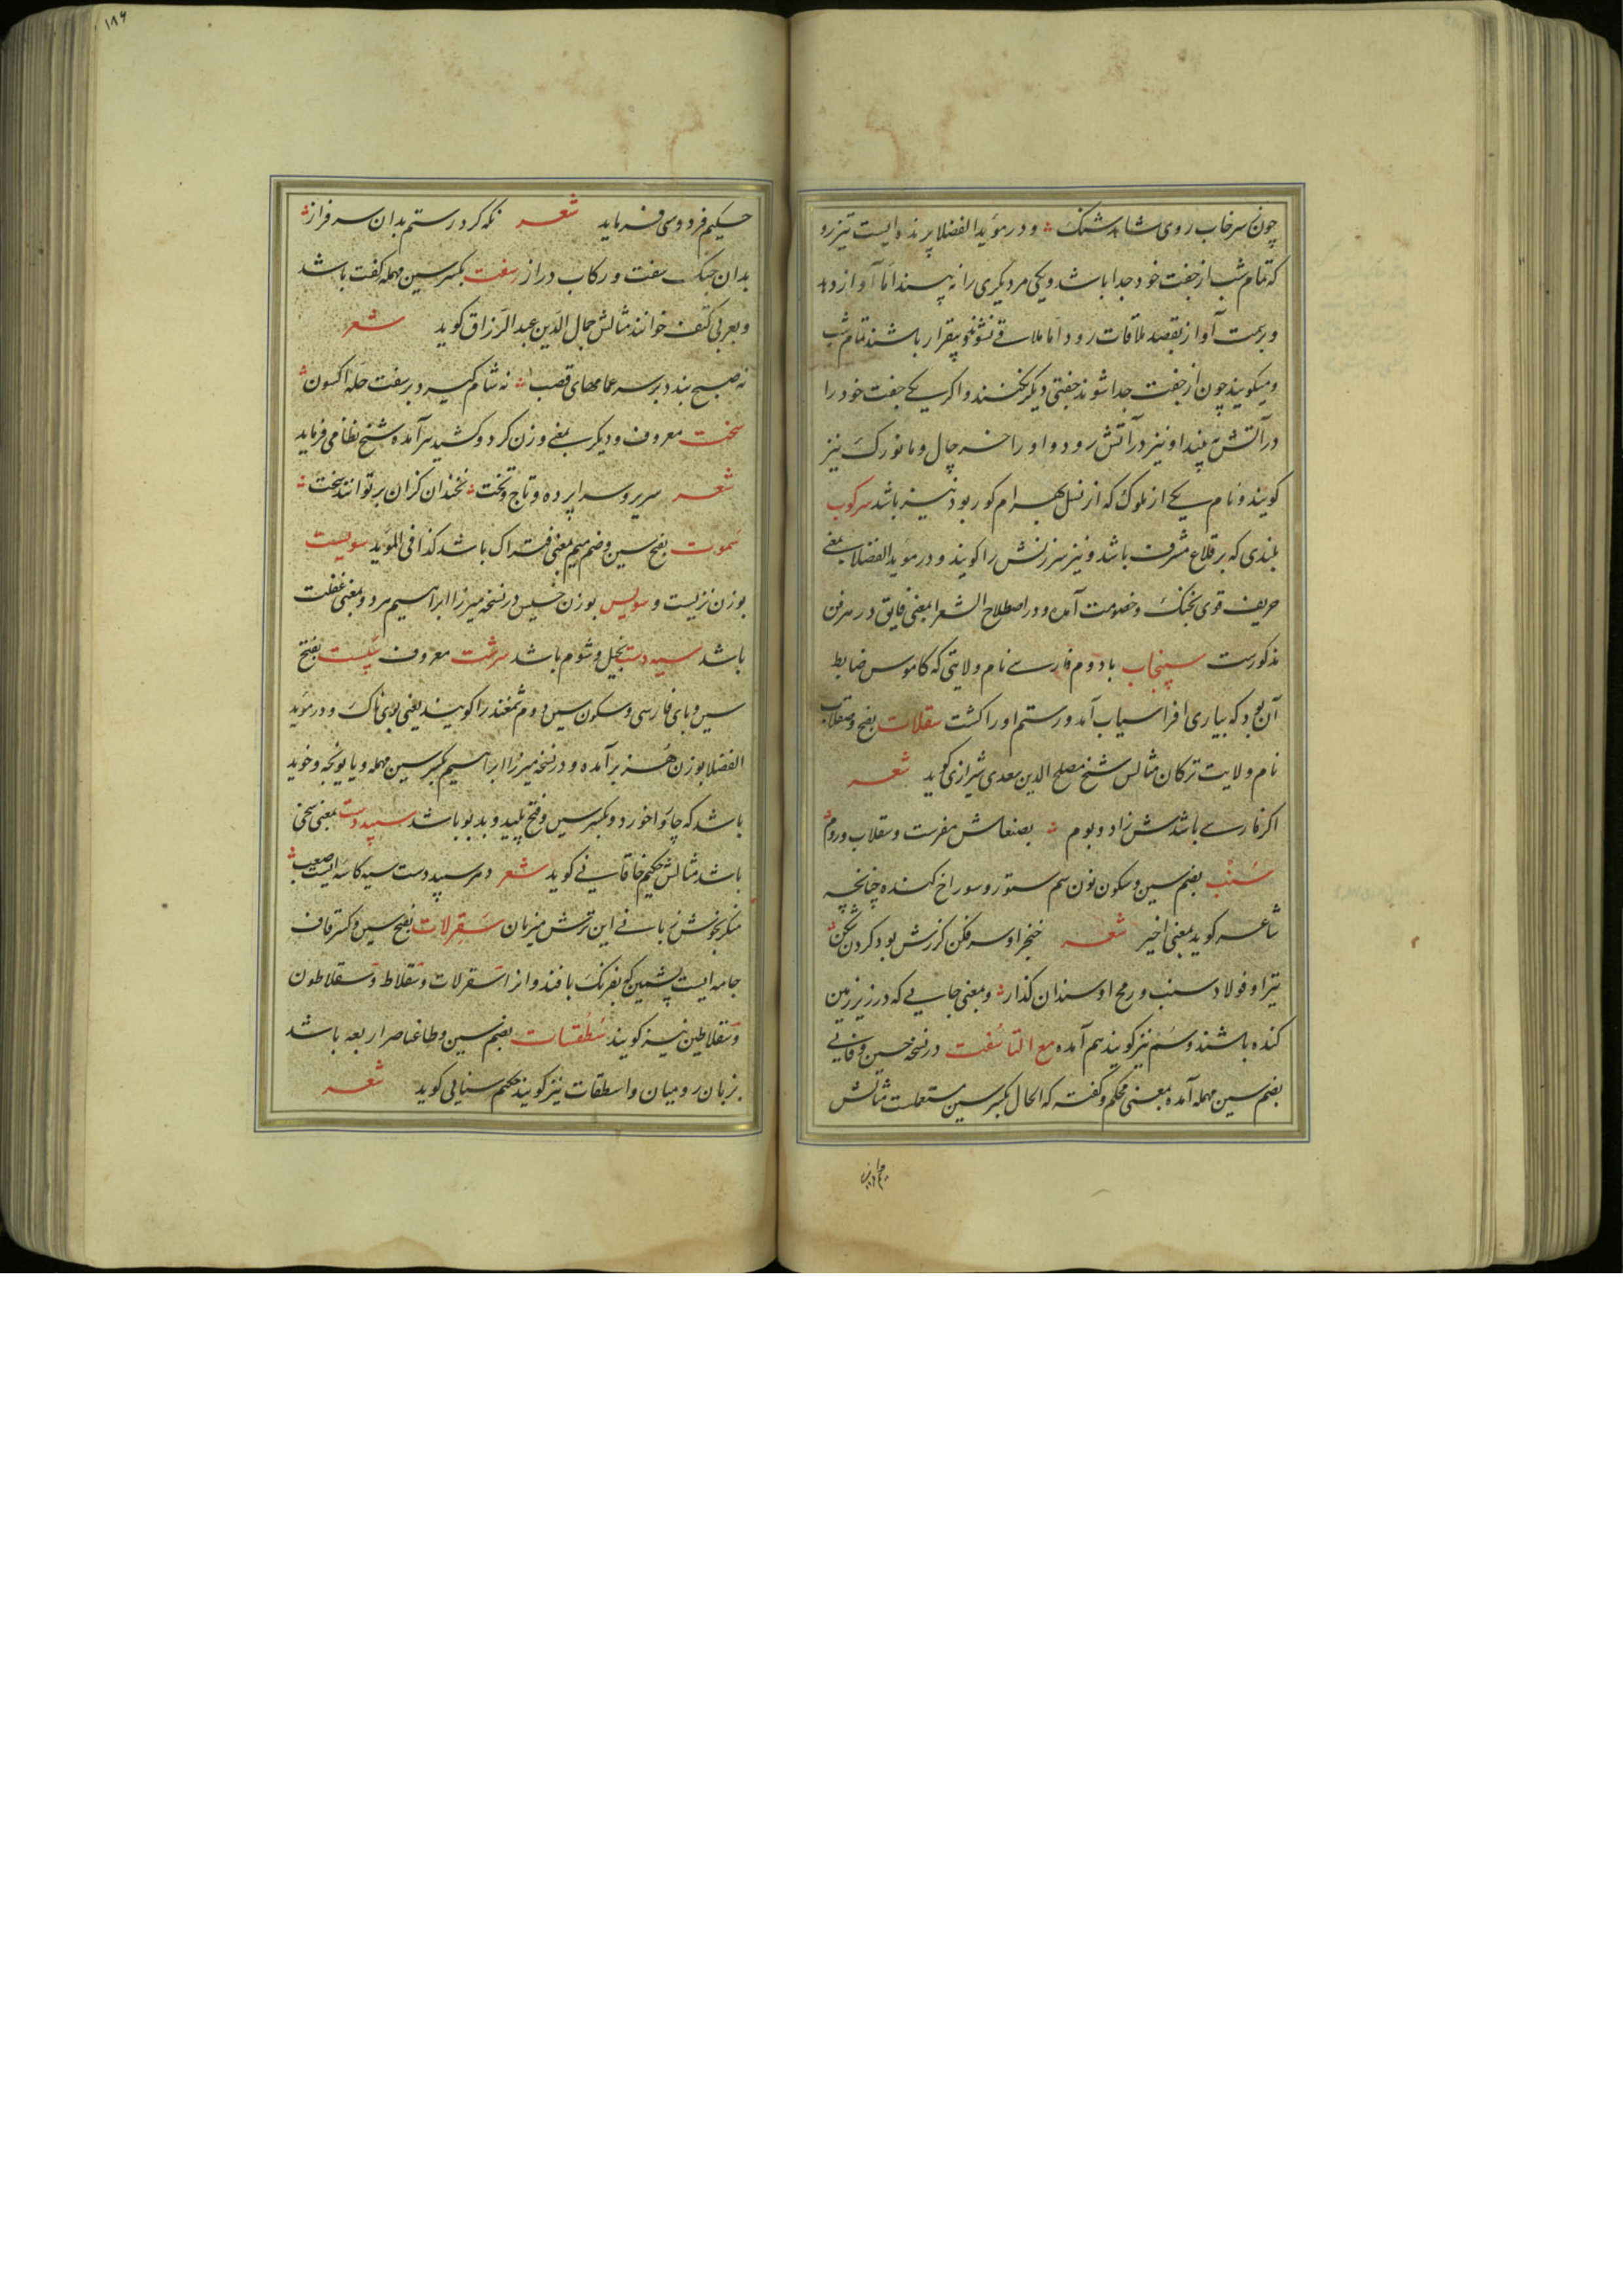 چون سرخاب روی شاهد شنک و در مؤید الفضلا پرنده ایست تیزرو
که تمام شب از جفت خود جدا باشد و یکی مر دیگری را نه پسند اما آواز دهد
و بر سمت آواز بقصد ملاقات رود اما ملاقی نشوند و بیقرار باشند تمام شب
و میکویند چون از جفت جدا شوند جفتی دیکر نکنند و اکر یکی جفت خود را
در آتش بیند او نیز در آتش رود و او را خرچال و مانورک نیز
کویند و نام یکی از ملوک که از نسل بهرام کور بود نیز باشد سرکوب
بلندی که بر قلاع مشرف باشد و نیز سرزنش را کویند و در موید الفضلا بمعنی
حریف قوی بجنک و خصومت آمده و در اصطلاح الشعرا بمعنی فایق در هر فن
مذکورست سپنجاب با دوم فارسی نام ولایتی که کاموس ضابط
آن بود که بیاری افراسیاب آمد و رستم او را کشت سقلات بفتح و سقلاب
نام ولایت ترکان مثالش شیخ مصلح الدین سعدی شیرازی کوید شعر
اکر فارسی باشدش زاد و بوم بصنعاش مفرست و سقلاب و روم
سنب بضم سین و سکون نون سم ستور و سوراخ کننده چنانچه
شاعر کوید بمعنی اخیر شعر خنجر او سر فکن کرزش بود کردن شکن
تیر او فولاد سنب و رمح او سندان کذار و بمعنی جایی که در زیر زمین
کنده باشند و سم نیز کویند هم آمده مع التا سفت در نسخه حسین وفائی
بضم سین مهمله آمده بمعنی محکم و کفته که الحال بکسر سین مستعملست مثالش
۱۸۹
حکیم فردوسی فرماید شعر نکه کرد رستم بدان سرفراز
بدان جنک سفت و رکاب دراز سفت بکسر سین مهمله کفت باشد
و بعربی کتف خوانند مثالش جمال الدین عبد الرزاق کوید شعر
نه صبح بندد بر سر عمامهای قصب نه شام کیرد بر سفت حله اکسون
سخت معروف و دیکر بمعنی وزن کرد و کشید هر آمده شیخ نظامی فرماید
شعر سریر و سراپرده و تاج و تخت نچندان کزان بر توانند سخت
سموت بفتح سین و ضم میم بمعنی فتراک باشد کذا فی المؤید سویست
بوزن نزیست و سویس بوزن خسیس در نسخه میرزا ابراهیم هر دو بمعنی غفلت
باشد سیه دست بخیل و شوم باشد سرشت معروف سپست بفتح
سین و بای فارسی و سکون سین دوم شمغند را کویند یعنی بوی ناک و در موید
الفضلا بوزن هزبر آمده و در نسخه میرزا ابراهیم بکسر سین مهمله و با یونجه و خوید
باشد که چاروا خورد و بکسر سین و فتح پلید و بدبو باشد سپید دست بمعنی سخی
باشد مثالش حکیم خاقانی کوید شعر دهر سپید دست سیه کاسه ایست صعب
منکر بخوش زبانی این ترش میزبان سقرلات بفتح سین و کسر قاف
جامه ایست پشمین که بفرنک بافند و آنرا سقرلات و سقلاط و سقلاطون
و سقلاطین نیز کویند سطقسات بضم سین و طا عناصر اربعه باشد
بزبان رومیان و اسطقات نیز کویند حکیم سنایی کوید شعر